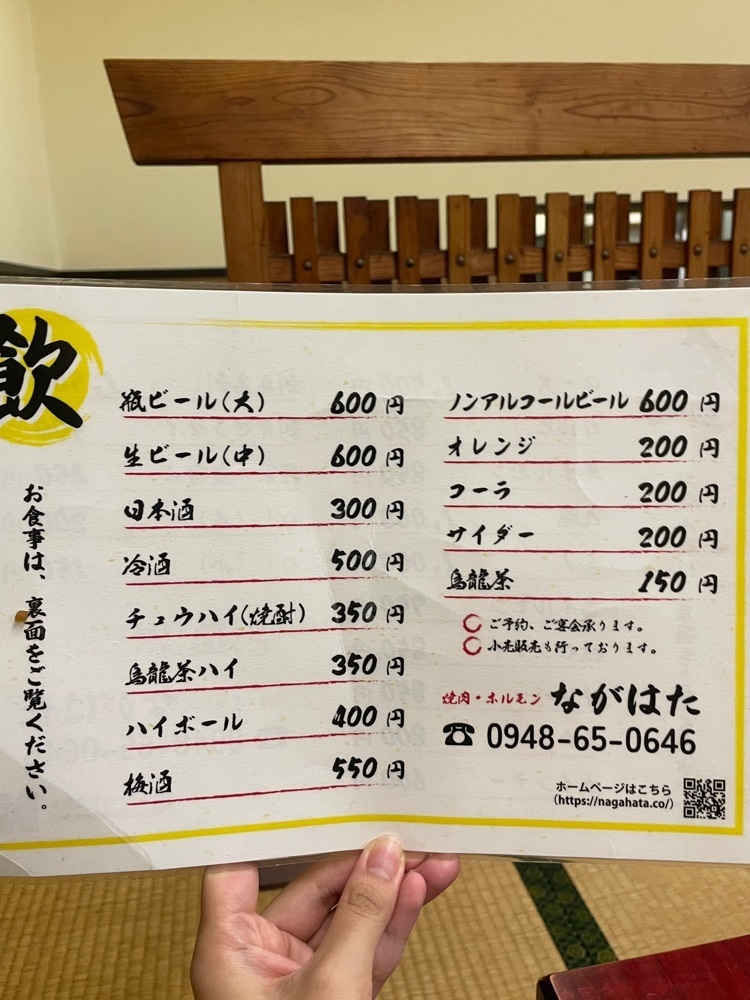 飲
お食事は、裏面をご覧ください。
瓶ビール(大) 600円
生ビール(中) 600円
日本酒 300円
冷酒 500円
チュウハイ(焼酎) 350円
烏龍茶ハイ 350円
ハイボール 400円
梅酒 550円
ノンアルコールビール 600円
オレンジ 200円
コーラ 200円
サイダー 200円
烏龍茶 150円
○ご予約、ご宴会承ります。
○小売販売も行っております。
焼肉・ホルモン ながはた
☎ 0948-65-0646
ホームページはこちら
(https://nagahata.co/)